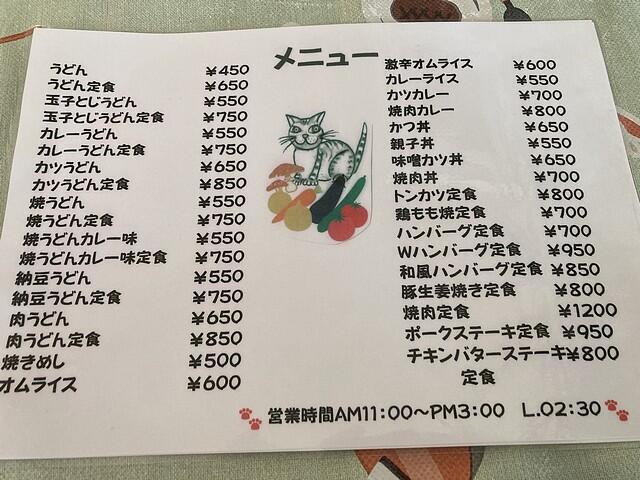 メニュー
うどん ¥450
うどん定食 ¥650
玉子とじうどん ¥550
玉子とじうどん定食 ¥750
カレーうどん ¥550
カレーうどん定食 ¥750
カツうどん ¥650
カツうどん定食 ¥850
焼うどん ¥550
焼うどん定食 ¥750
焼うどんカレー味 ¥550
焼うどんカレー味定食 ¥750
納豆うどん ¥550
納豆うどん定食 ¥750
肉うどん ¥650
肉うどん定食 ¥850
焼きめし ¥500
オムライス ¥600
激辛オムライス ¥600
カレーライス ¥550
カツカレー ¥700
焼肉カレー ¥800
かつ丼 ¥650
親子丼 ¥550
味噌カツ丼 ¥650
焼肉丼 ¥700
トンカツ定食 ¥800
鶏もも焼定食 ¥700
ハンバーグ定食 ¥700
Wハンバーグ定食 ¥950
和風ハンバーグ定食 ¥850
豚生姜焼き定食 ¥800
焼肉定食 ¥1200
ポークステーキ定食 ¥950
チキンバターステーキ¥800
定食
営業時間AM11:00〜PM3:00 L.O2:30